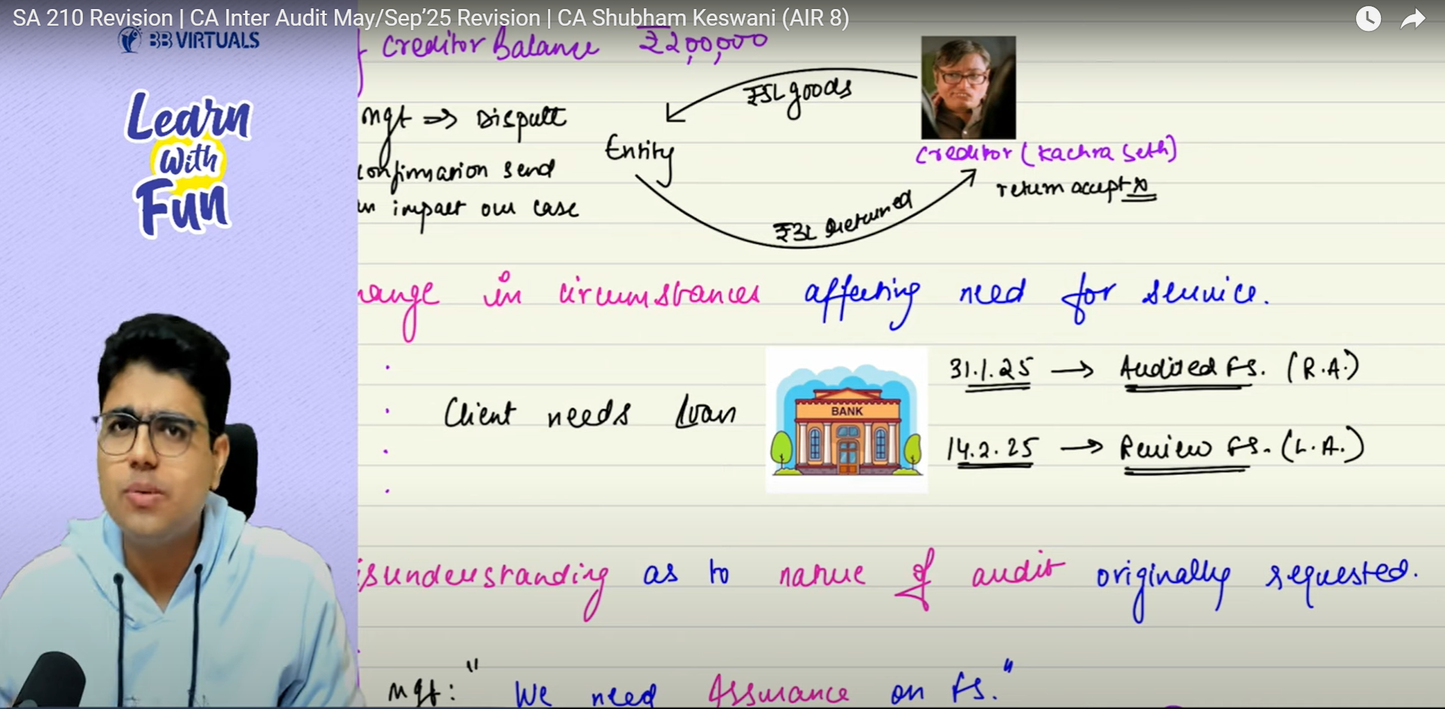 SA 210 Revision | CA Inter Audit May/Sep'25 Revision | CA Shubham Keswani (AIR 8)
BB VIRTUALS
Learn
With
Fun
f Creditor Balance ₹2,00,000
mgt => Dispute
confirmation send
impact our case
Entity
₹5L goods
Creditor (Kachra Seth)
return accept x
₹3L returned
hange in circumstances affecting need for service.
Client needs Loan
BANK
31.1.25 → Audited FS. (R.A.)
14.2.25 → Review FS. (L.A.)
isunderstanding as to nature of audit originally requested.
mgt: "We need Assurance on FS."